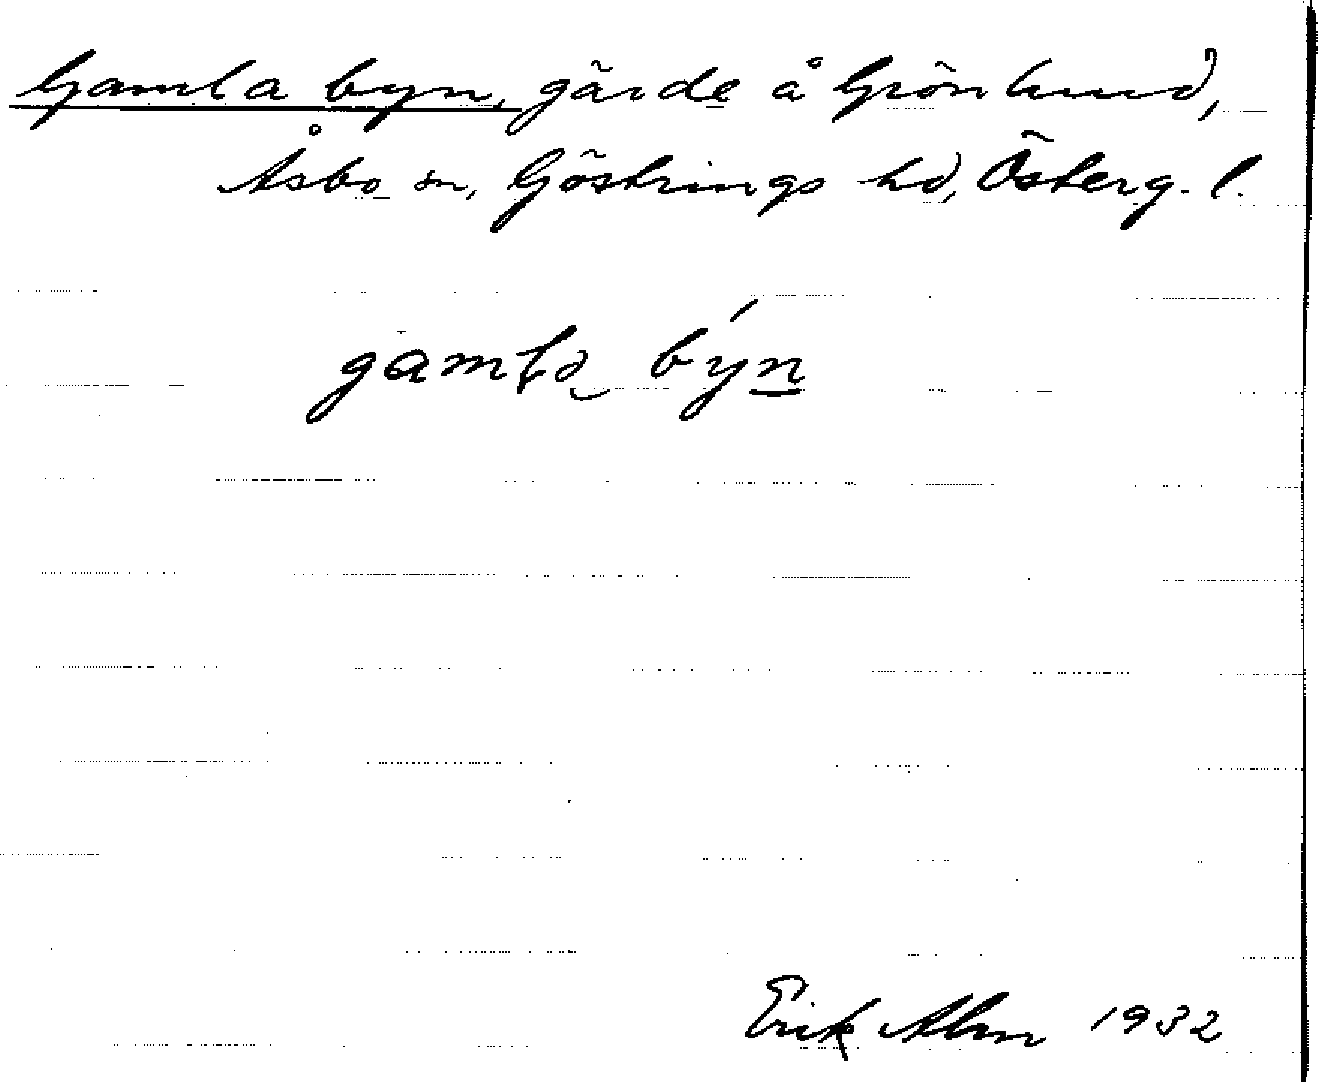 Gamla byn, gärde å Grönlund,
Åsbo sn, Göstrings hd, Österg. l.
gamła býn
Erik Alm 1932